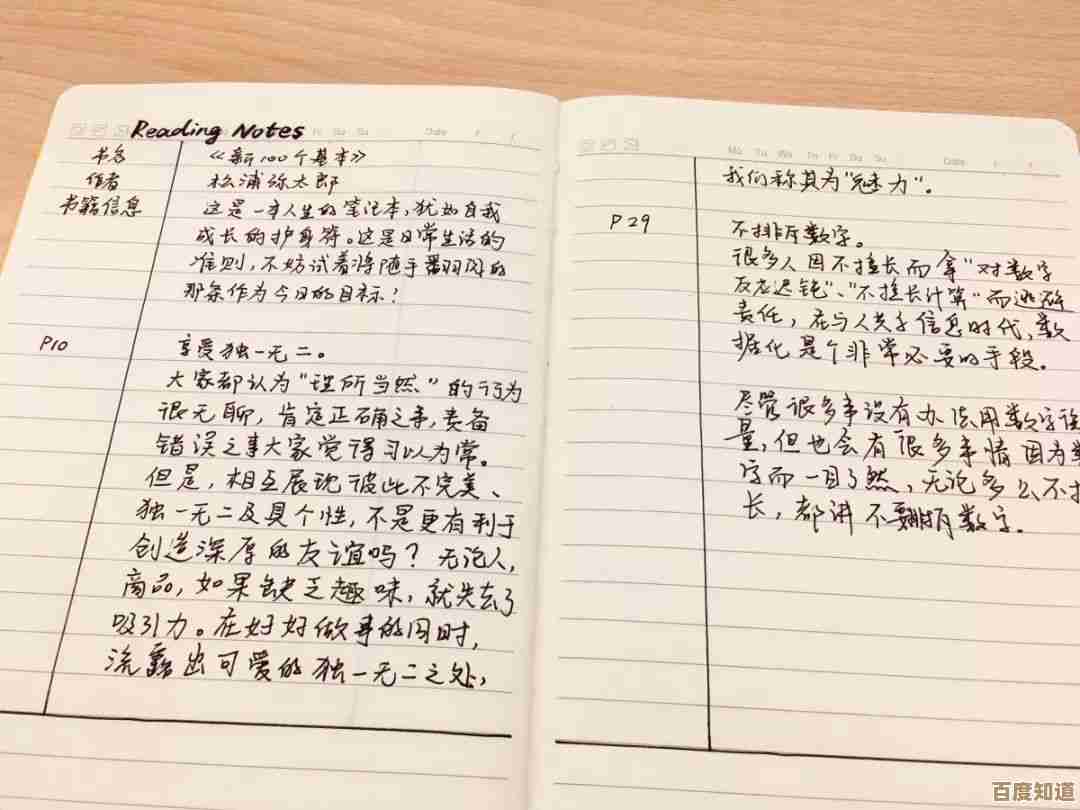 Reading Notes
书名 《新100个基本》
作者 松浦弥太郎
书籍信息 这是一本人生的笔记本,犹如自我
成长的护身符。这是日常生活的
准则,不妨试着将随手翻阅的
那条作为今日的目标!
P10 享受独一无二。
大家都认为“理所当然”的行为
很无聊,肯定正确之事,责备
错误之事大家觉得习以为常。
但是,相互展现彼此不完美、
独一无二及具个性,不是更有利于
创造深厚的友谊吗?无论人,
商品,如果缺乏趣味,就失去了
吸引力。在好好做事的同时,
流露出可爱的独一无二之处,
Mo Tu We Th Fr Sa Su Date / /
我们称其为“魅力”。
P29 不排斥数字。
很多人因不擅长而拿“对数字
反应迟钝”、“不擅长计算”而逃避
责任,在与人共享信息时代,数
据化是个非常必要的手段。
尽管很多事没有办法用数字衡
量,但也会有很多事情因为数
字而一目了然,无论多么不擅
长,都讲不 数字。
Fr Sa Su Date / /
百度知道